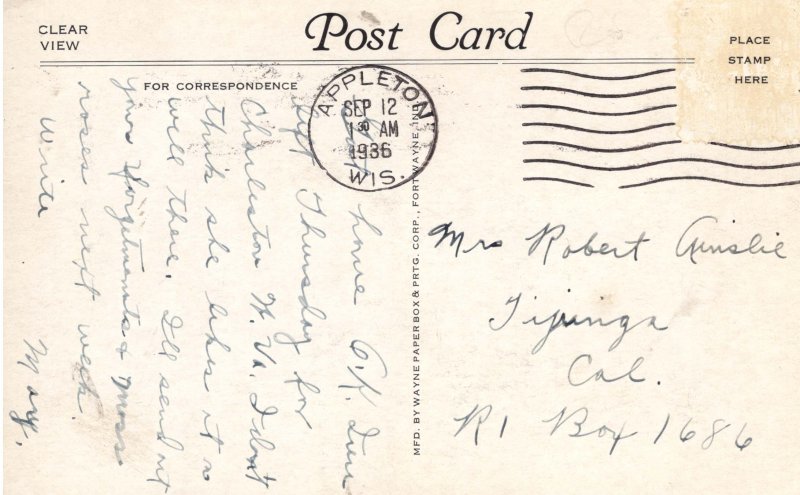 CLEAR
VIEW
Post Card
PLACE
STAMP
HERE
FOR CORRESPONDENCE
APPLETON
SEP 12
1 30 AM
1936
WIS.
home O.K. June
left Thursday for
Charleston W. Va. I dont
think she likes it so
will there. I'll send out
your forgetments & Moss
roses next week.
Write
Mary.
MFD. BY WAYNE PAPER BOX & PRTG. CORP., FORT WAYNE, IND.
Mrs Robert Ainslie
Tijunga
Cal.
R1 Box 1686